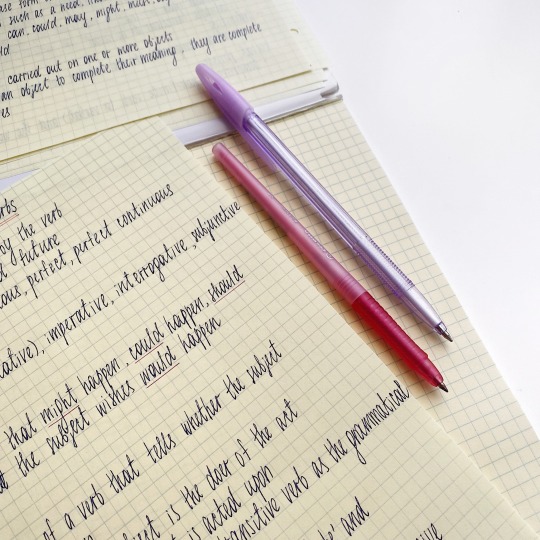 such as a need,
can, could, may, might, must,
carried out on one or more objects
an object to complete their meaning, they are complete
by the verb
future
perfect, perfect continuous
imperative, interrogative, subjunctive
that might happen, could happen, should
the subject wishes would happen
of a verb that tells whether the subject
is the doer of the act
is acted upon
verb as the grammatical
and